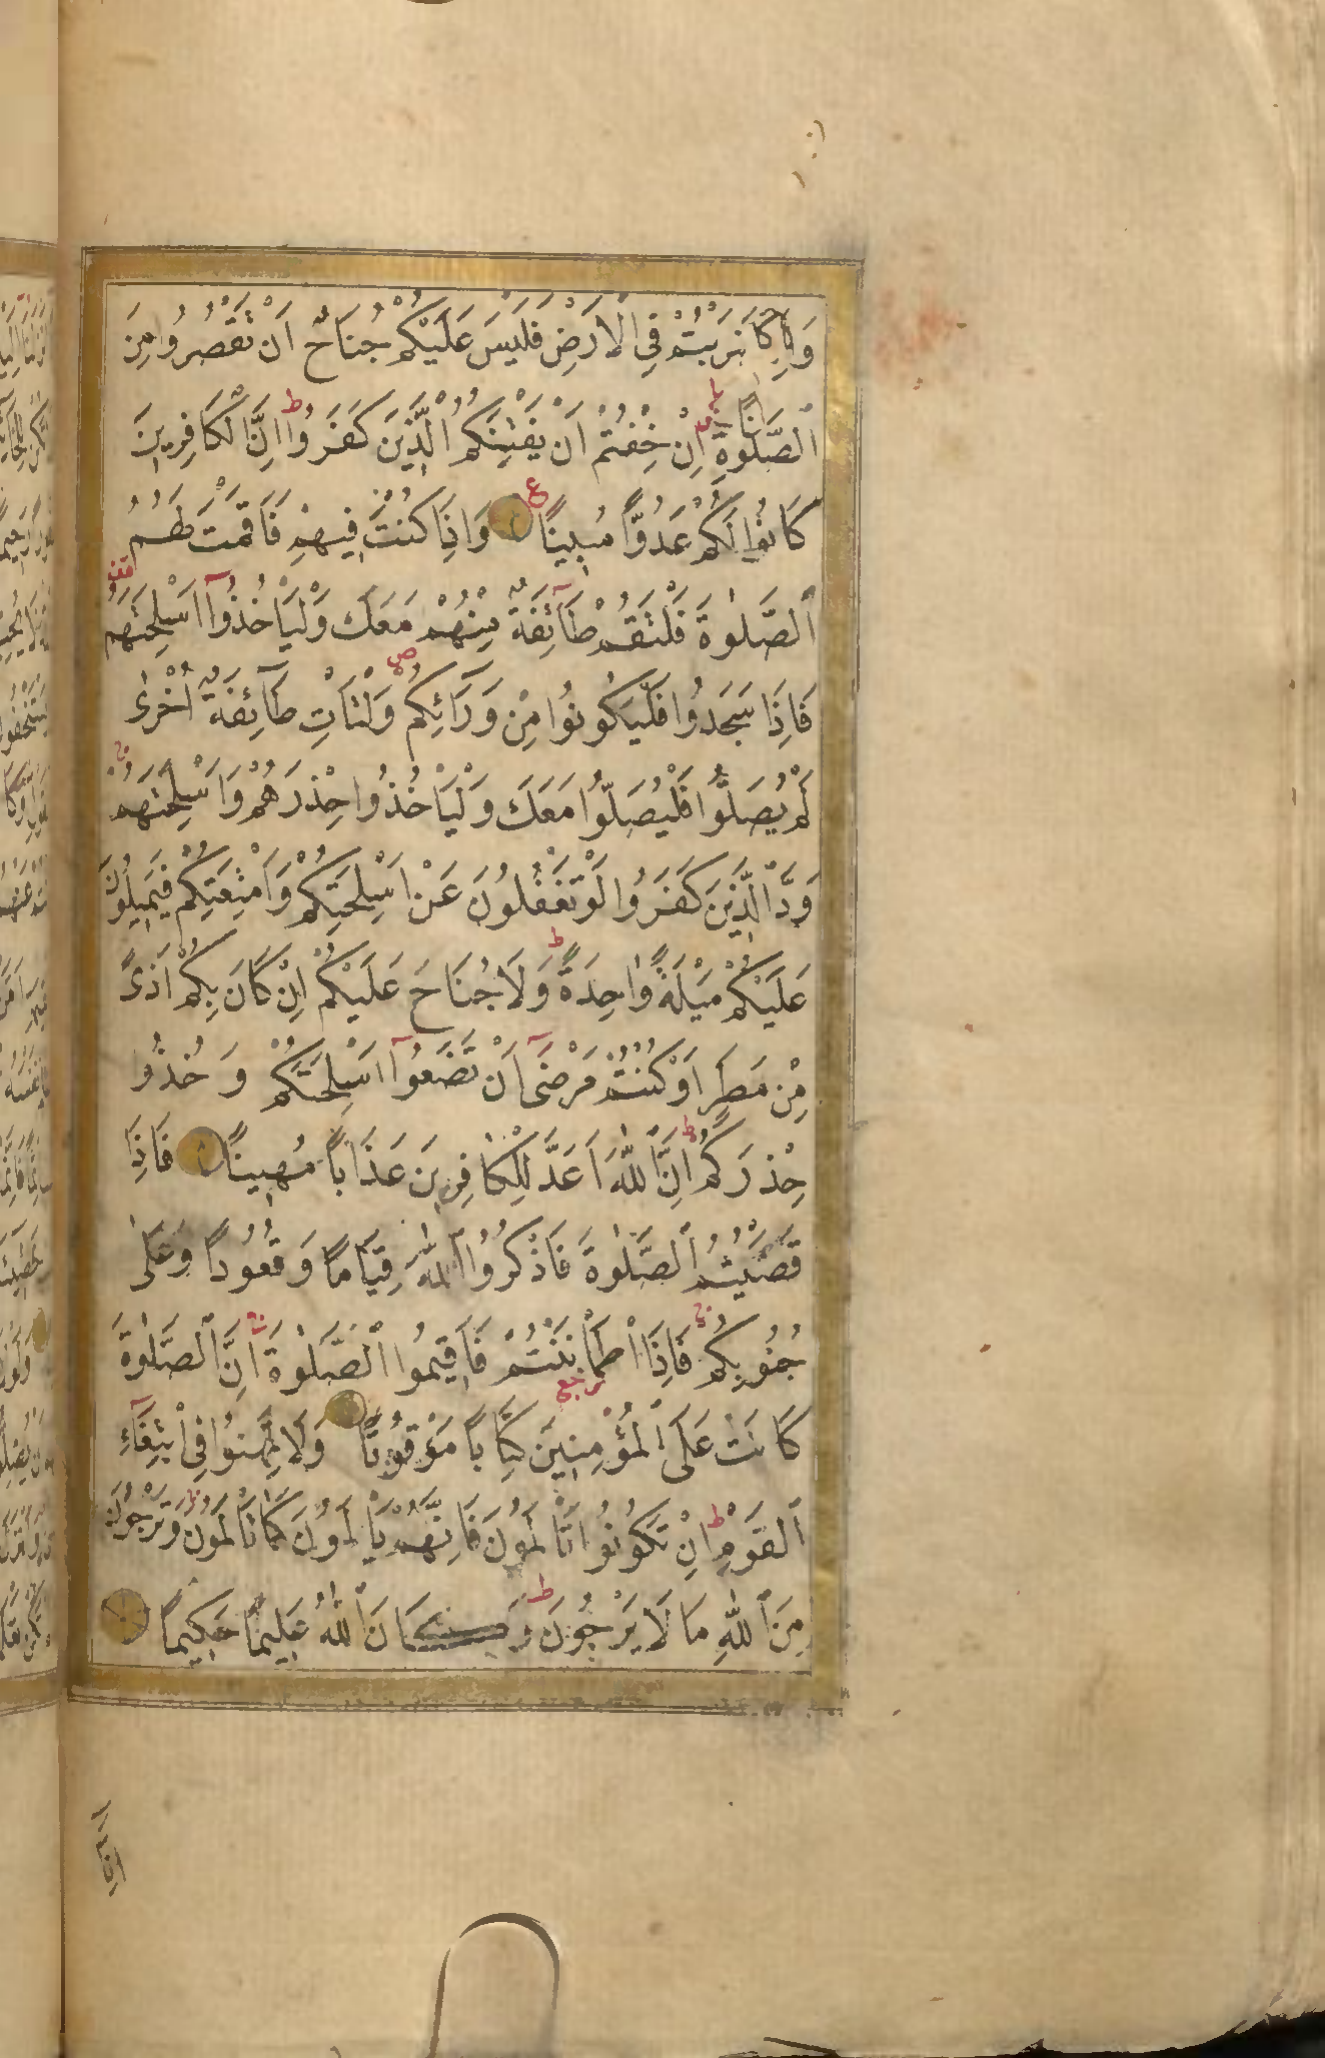 وَاِذَا ضَرَبْتُمْ فِي الْاَرْضِ فَلَيْسَ عَلَيْكُمْ جُنَاحٌ اَنْ تَقْصُرُوا مِنَ
الصَّلٰوةِ اِنْ خِفْتُمْ اَنْ يَفْتِنَكُمُ الَّذِينَ كَفَرُوا اِنَّ الْكَافِرِينَ
كَانُوا لَكُمْ عَدُوًّا مُبِينًا وَاِذَا كُنْتَ فِيهِمْ فَاَقَمْتَ لَهُمُ
الصَّلٰوةَ فَلْتَقُمْ طَآئِفَةٌ مِنْهُمْ مَعَكَ وَلْيَاْخُذُوٓا اَسْلِحَتَهُمْ
فَاِذَا سَجَدُوا فَلْيَكُونُوا مِنْ وَرَآئِكُمْ وَلْتَاْتِ طَآئِفَةٌ اُخْرٰى
لَمْ يُصَلُّوا فَلْيُصَلُّوا مَعَكَ وَلْيَاْخُذُوا حِذْرَهُمْ وَاَسْلِحَتَهُمْ
وَدَّ الَّذِينَ كَفَرُوا لَوْ تَغْفُلُونَ عَنْ اَسْلِحَتِكُمْ وَاَمْتِعَتِكُمْ فَيَمِيلُونَ
عَلَيْكُمْ مَيْلَةً وَاحِدَةً وَلَا جُنَاحَ عَلَيْكُمْ اِنْ كَانَ بِكُمْ اَذًى
مِنْ مَطَرٍ اَوْ كُنْتُمْ مَرْضٰٓى اَنْ تَضَعُوٓا اَسْلِحَتَكُمْ وَخُذُوا
حِذْرَكُمْ اِنَّ اللّٰهَ اَعَدَّ لِلْكَافِرِينَ عَذَابًا مُهِينًا فَاِذَا
قَضَيْتُمُ الصَّلٰوةَ فَاذْكُرُوا اللّٰهَ قِيَامًا وَقُعُودًا وَعَلٰى
جُنُوبِكُمْ فَاِذَا اطْمَاْنَنْتُمْ فَاَقِيمُوا الصَّلٰوةَ اِنَّ الصَّلٰوةَ
كَانَتْ عَلَى الْمُؤْمِنِينَ كِتَابًا مَوْقُوتًا وَلَا تَهِنُوا فِي ابْتِغَآءِ
الْقَوْمِ اِنْ تَكُونُوا تَاْلَمُونَ فَاِنَّهُمْ يَاْلَمُونَ كَمَا تَاْلَمُونَ وَتَرْجُونَ
مِنَ اللّٰهِ مَا لَا يَرْجُونَ وَكَانَ اللّٰهُ عَلِيمًا حَكِيمًا